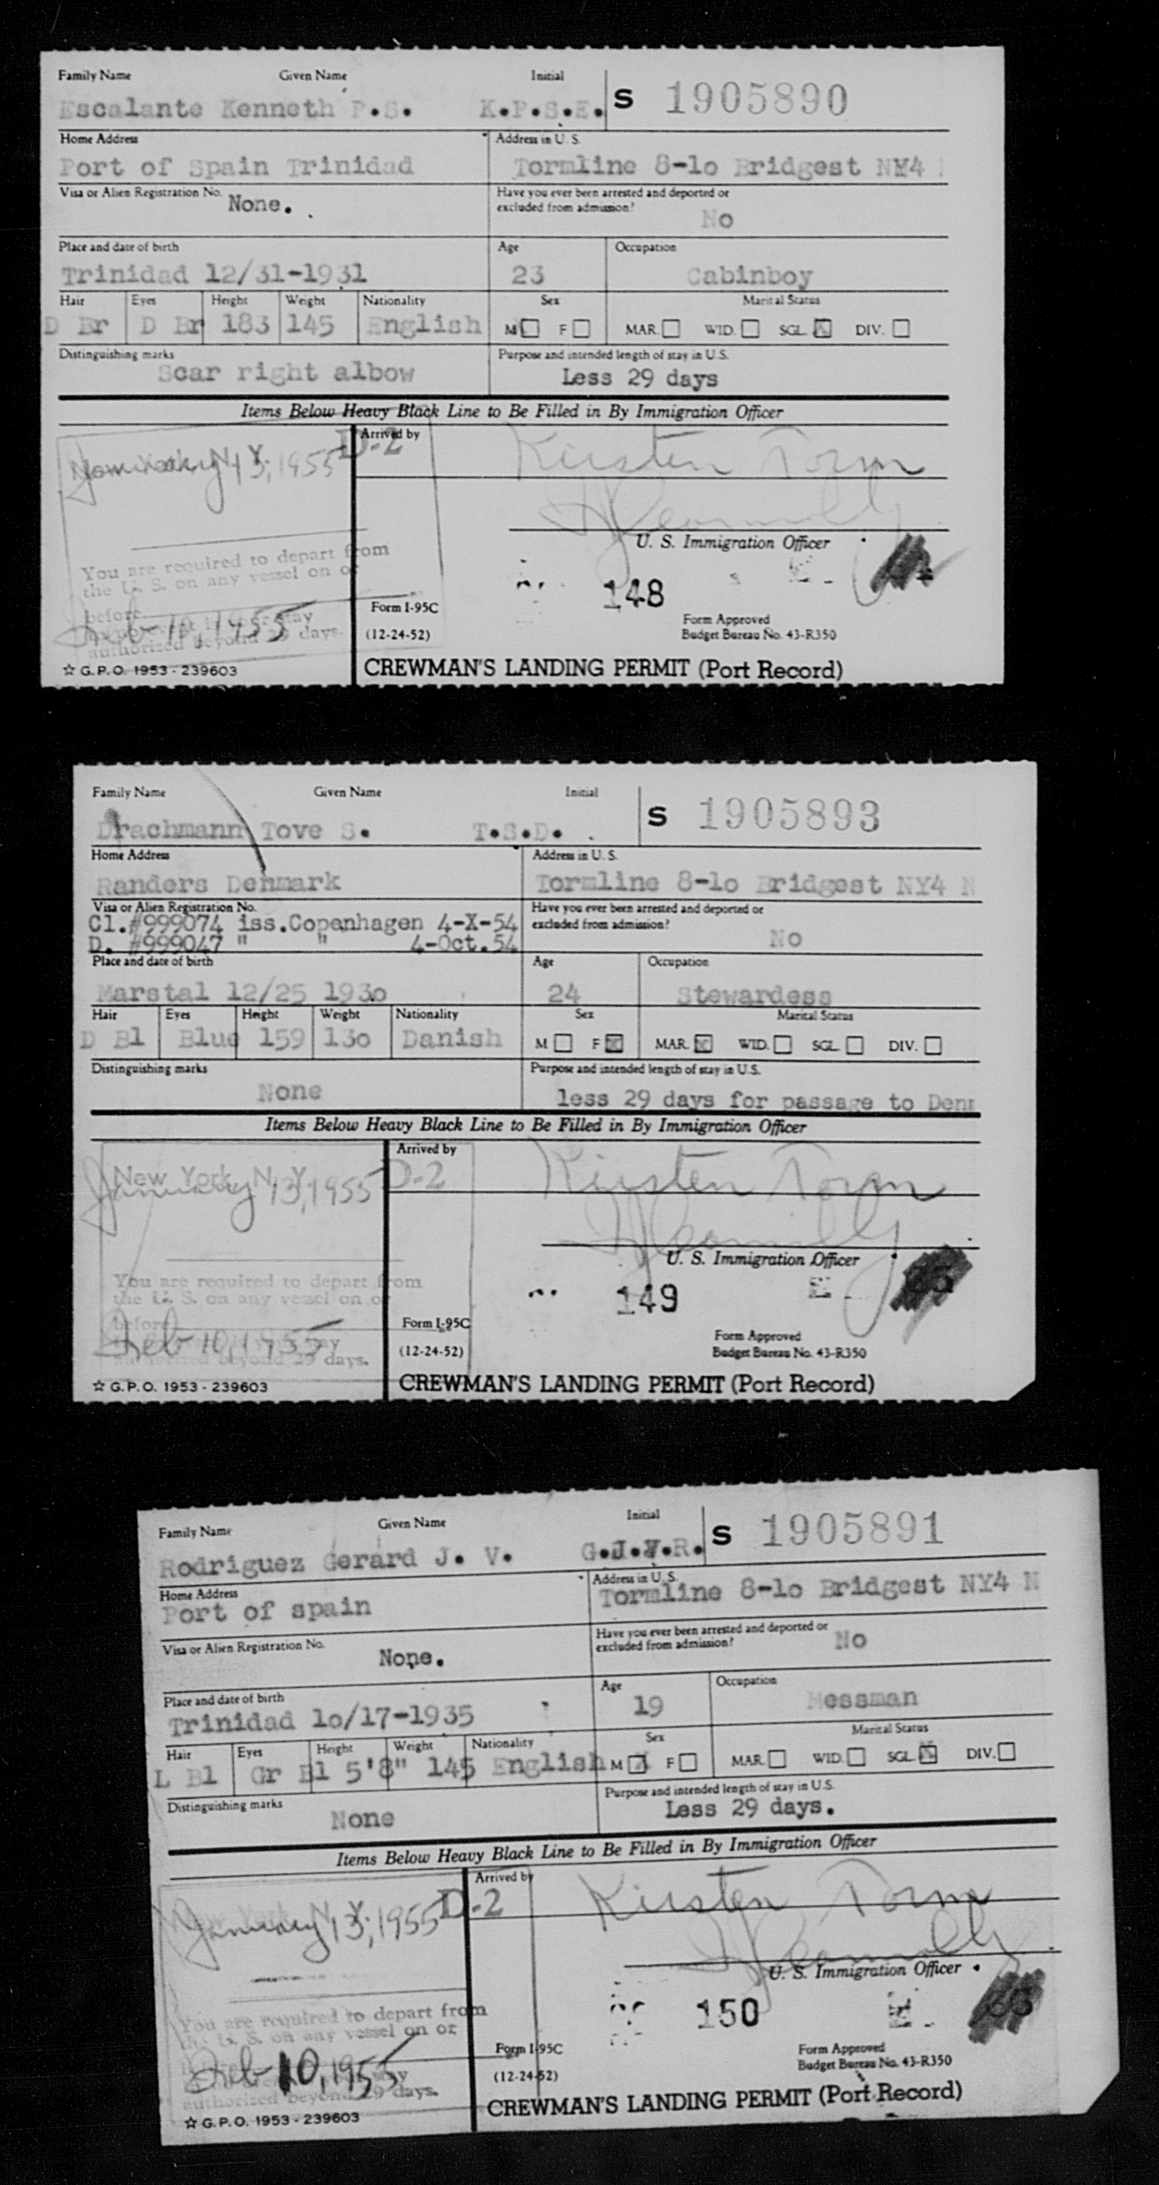 Family Name Given Name Initial
Escalante Kenneth P.S. K.P.S.E. S 1905890
Home Address Address in U. S.
Port of Spain Trinidad Tormline 8-lo Bridgest NY4
Visa or Alien Registration No. None. Have you ever been arrested and deported or
excluded from admission? No
Place and date of birth Age Occupation
Trinidad 12/31-1931 23 Cabinboy
Hair Eyes Height Weight Nationality Sex Marital Status
D Br D Br 183 145 English M F MAR. WID. SGL. DIV.
Distinguishing marks Purpose and intended length of stay in U.S.
Scar right albow Less 29 days
Items Below Heavy Black Line to Be Filled in By Immigration Officer
Arrived by
January 13, 1955 D-2 Kirsten Torm
U. S. Immigration Officer
You are required to depart from
the U. S. on any vessel on or
before
148
Form I-95C
Form Approved
Feb 10, 1955
authorized beyond 29 days.
(12-24-52) Budget Bureau No. 43-R350
☆ G.P.O. 1953-239603 CREWMAN'S LANDING PERMIT (Port Record)
Family Name Given Name Initial
Drachmann Tove S. T.S.D. S 1905893
Home Address Address in U. S.
Randers Denmark Tormline 8-lo Bridgest NY4 N
Visa or Alien Registration No. Have you ever been arrested and deported or
Cl.#999074 iss.Copenhagen 4-X-54 excluded from admission? No
D. #999047 " " 4-Oct.54
Place and date of birth Age Occupation
Marstal 12/25 193o 24 Stewardess
Hair Eyes Height Weight Nationality Sex Marital Status
D Bl Blue 159 13o Danish M F MAR. WID. SGL. DIV.
Distinguishing marks Purpose and intended length of stay in U.S.
None less 29 days for passage to Denm
Items Below Heavy Black Line to Be Filled in By Immigration Officer
Arrived by
New York, N. Y.
January 13, 1955 D-2 Kirsten Torm
U. S. Immigration Officer
You are required to depart from
the U. S. on any vessel on or
before
149
Form I-95C
Feb 10, 1955
Form Approved
authorized beyond 29 days.
(12-24-52) Budget Bureau No. 43-R350
☆ G.P.O. 1953-239603 CREWMAN'S LANDING PERMIT (Port Record)
Family Name Given Name Initial
Rodriguez Gerard J. V. G.J.V.R. S 1905891
Home Address Address in U. S.
Port of spain Tormline 8-lo Bridgest NY4 N
Visa or Alien Registration No. None. Have you ever been arrested and deported or
excluded from admission? No
Place and date of birth Age Occupation
Trinidad lo/17-1935 19 Messman
Hair Eyes Height Weight Nationality Sex Marital Status
L Bl Gr Bl 5'8" 145 English M X F MAR. WID. SGL. DIV.
Distinguishing marks Purpose and intended length of stay in U.S.
None Less 29 days.
Items Below Heavy Black Line to Be Filled in By Immigration Officer
Arrived by
January 13, 1955 D-2 Kirsten Torm
U. S. Immigration Officer
You are required to depart from
the U. S. on any vessel on or
150
Form I-95C
Form Approved
Feb 10, 1955
authorized beyond 29 days.
(12-24-52) Budget Bureau No. 43-R350
☆ G.P.O. 1953-239603 CREWMAN'S LANDING PERMIT (Port Record)